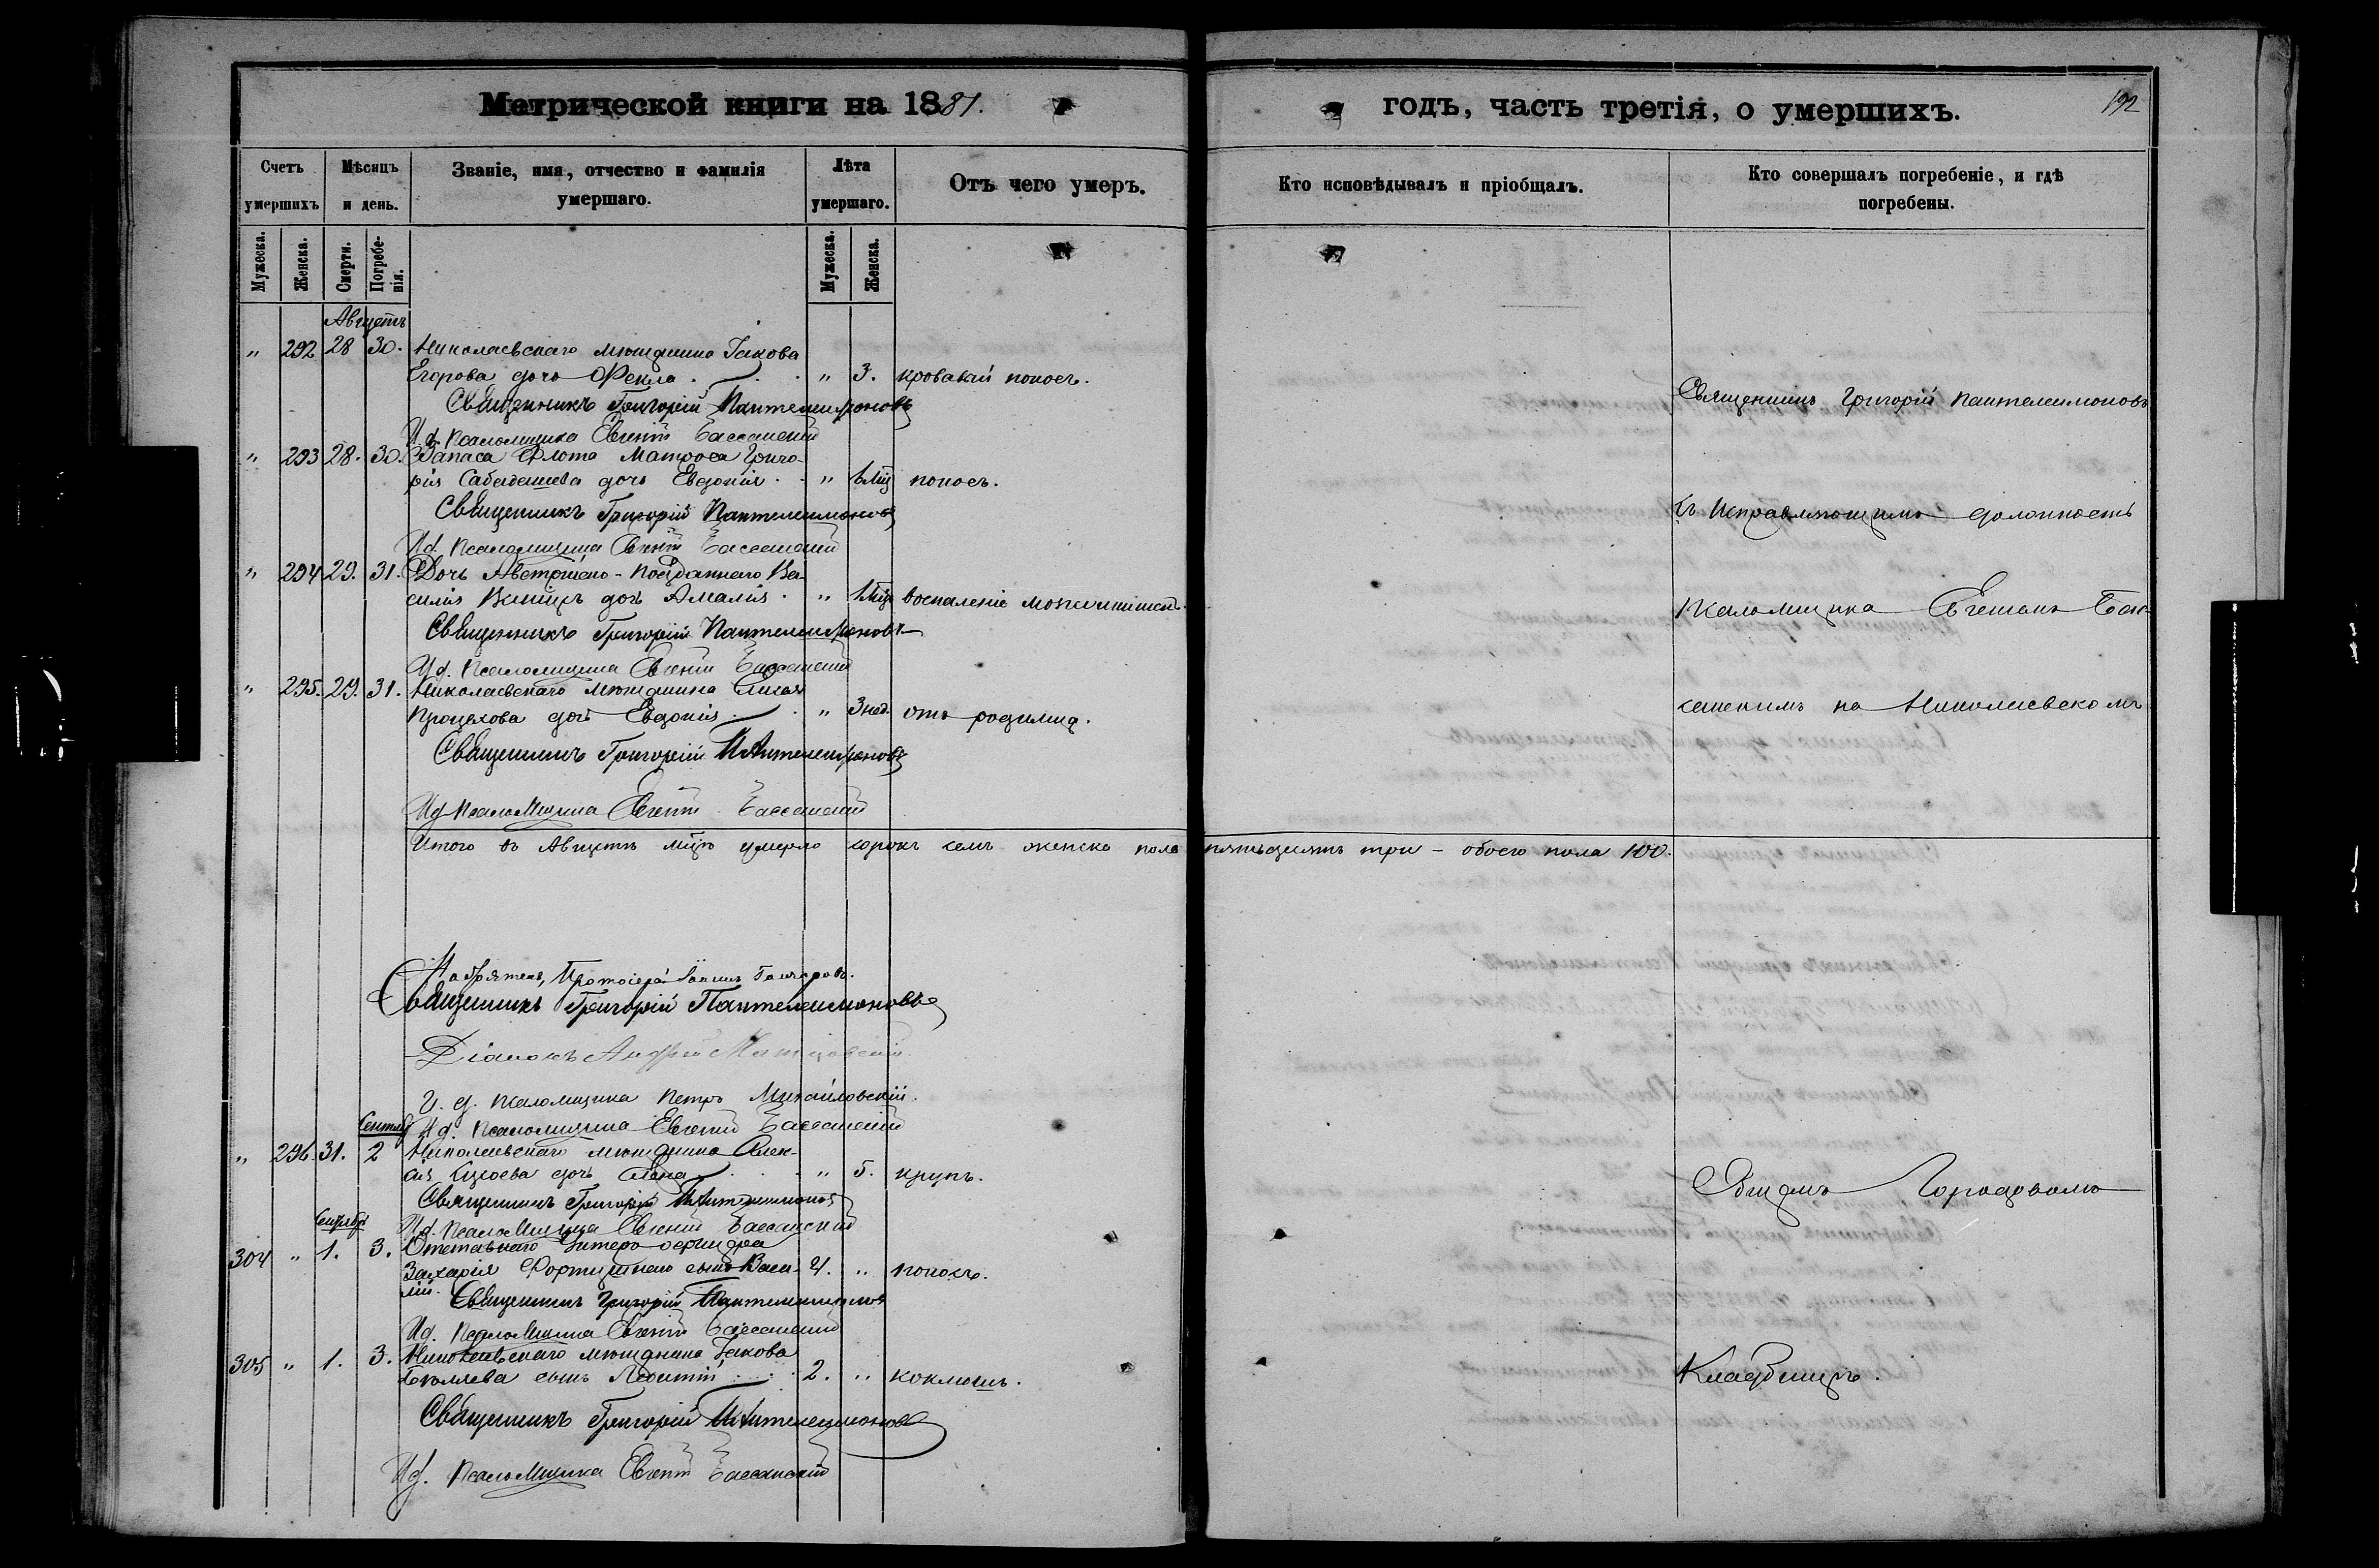 Метрической книги на 1881.
годъ, часть третія, о умершихъ.
192
Счетъ умершихъ
Мѣсяцъ и день.
Званіе, имя, отчество и фамилія умершаго.
Лѣта умершаго.
Отъ чего умеръ.
Кто исповѣдывалъ и пріобщалъ.
Кто совершалъ погребеніе, и гдѣ погребены.
Мужеска.
Женска.
Смерти.
Погребенія.
Мужеска.
Женска.
Августъ
" 292 28 30. Николаевскаго мѣщанина Іакова
Егорова дочь Фекла. " 3. кровавый поносъ.
Священникъ Григорій Пантелеимоновъ
И.д. Псаломщика Евгеній
" 293 28. 30. Запаса Флота Матроса Григо-
рія дочь Евдокія. " поносъ.
Священникъ Григорій Пантелеимоновъ
И.д. Псаломщика Евгеній
" 294 29. 31. Дочь Австрійско-Подданнаго Ва-
силія дочь Амалія. " воспаленіе
Священникъ Григорій Пантелеимоновъ
И.д. Псаломщика Евгеній
" 295. 29. 31. Николаевскаго мѣщанина
дочь Евдокія. " 3 нед. отъ родимца.
Священникъ Григорій Пантелеимоновъ
И.д. Псаломщика Евгеній
Итого въ Августѣ м̃цѣ умерло сорокъ семь женска пола пятьдесятъ три – обоего пола 100.
Священникъ Григорій Пантелеимоновъ
съ Исправляющимъ должность
Псаломщика Евгеніемъ
на Николаевскомъ
Протоіерей
Священникъ Григорій Пантелеимоновъ
Діаконъ Андрей
И. д. псаломщика Петръ Михайловскій.
И.д. Псаломщика Евгеній
Сентяб
" 296. 31. 2 Николаевскаго мѣщанина Алек-
сія дочь " 5. крупъ.
Священникъ Григорій Пантелеимоновъ
И.д. Псаломщика Евгеній
Сентябрь
304 " 1. 3. Отставнаго Унтеръ офицера
Захарія сынъ Васи- " поносъ.
лій.
Священникъ Григорій Пантелеимоновъ
И.д. Псаломщика Евгеній
305 " 1. 3. Николаевскаго мѣщанина Іакова
сынъ Леонтій 2. " коклюшъ.
Священникъ Григорій Пантелеимоновъ
И.д. Псаломщика Евгеній
Общемъ Городскомъ
Кладбищѣ.